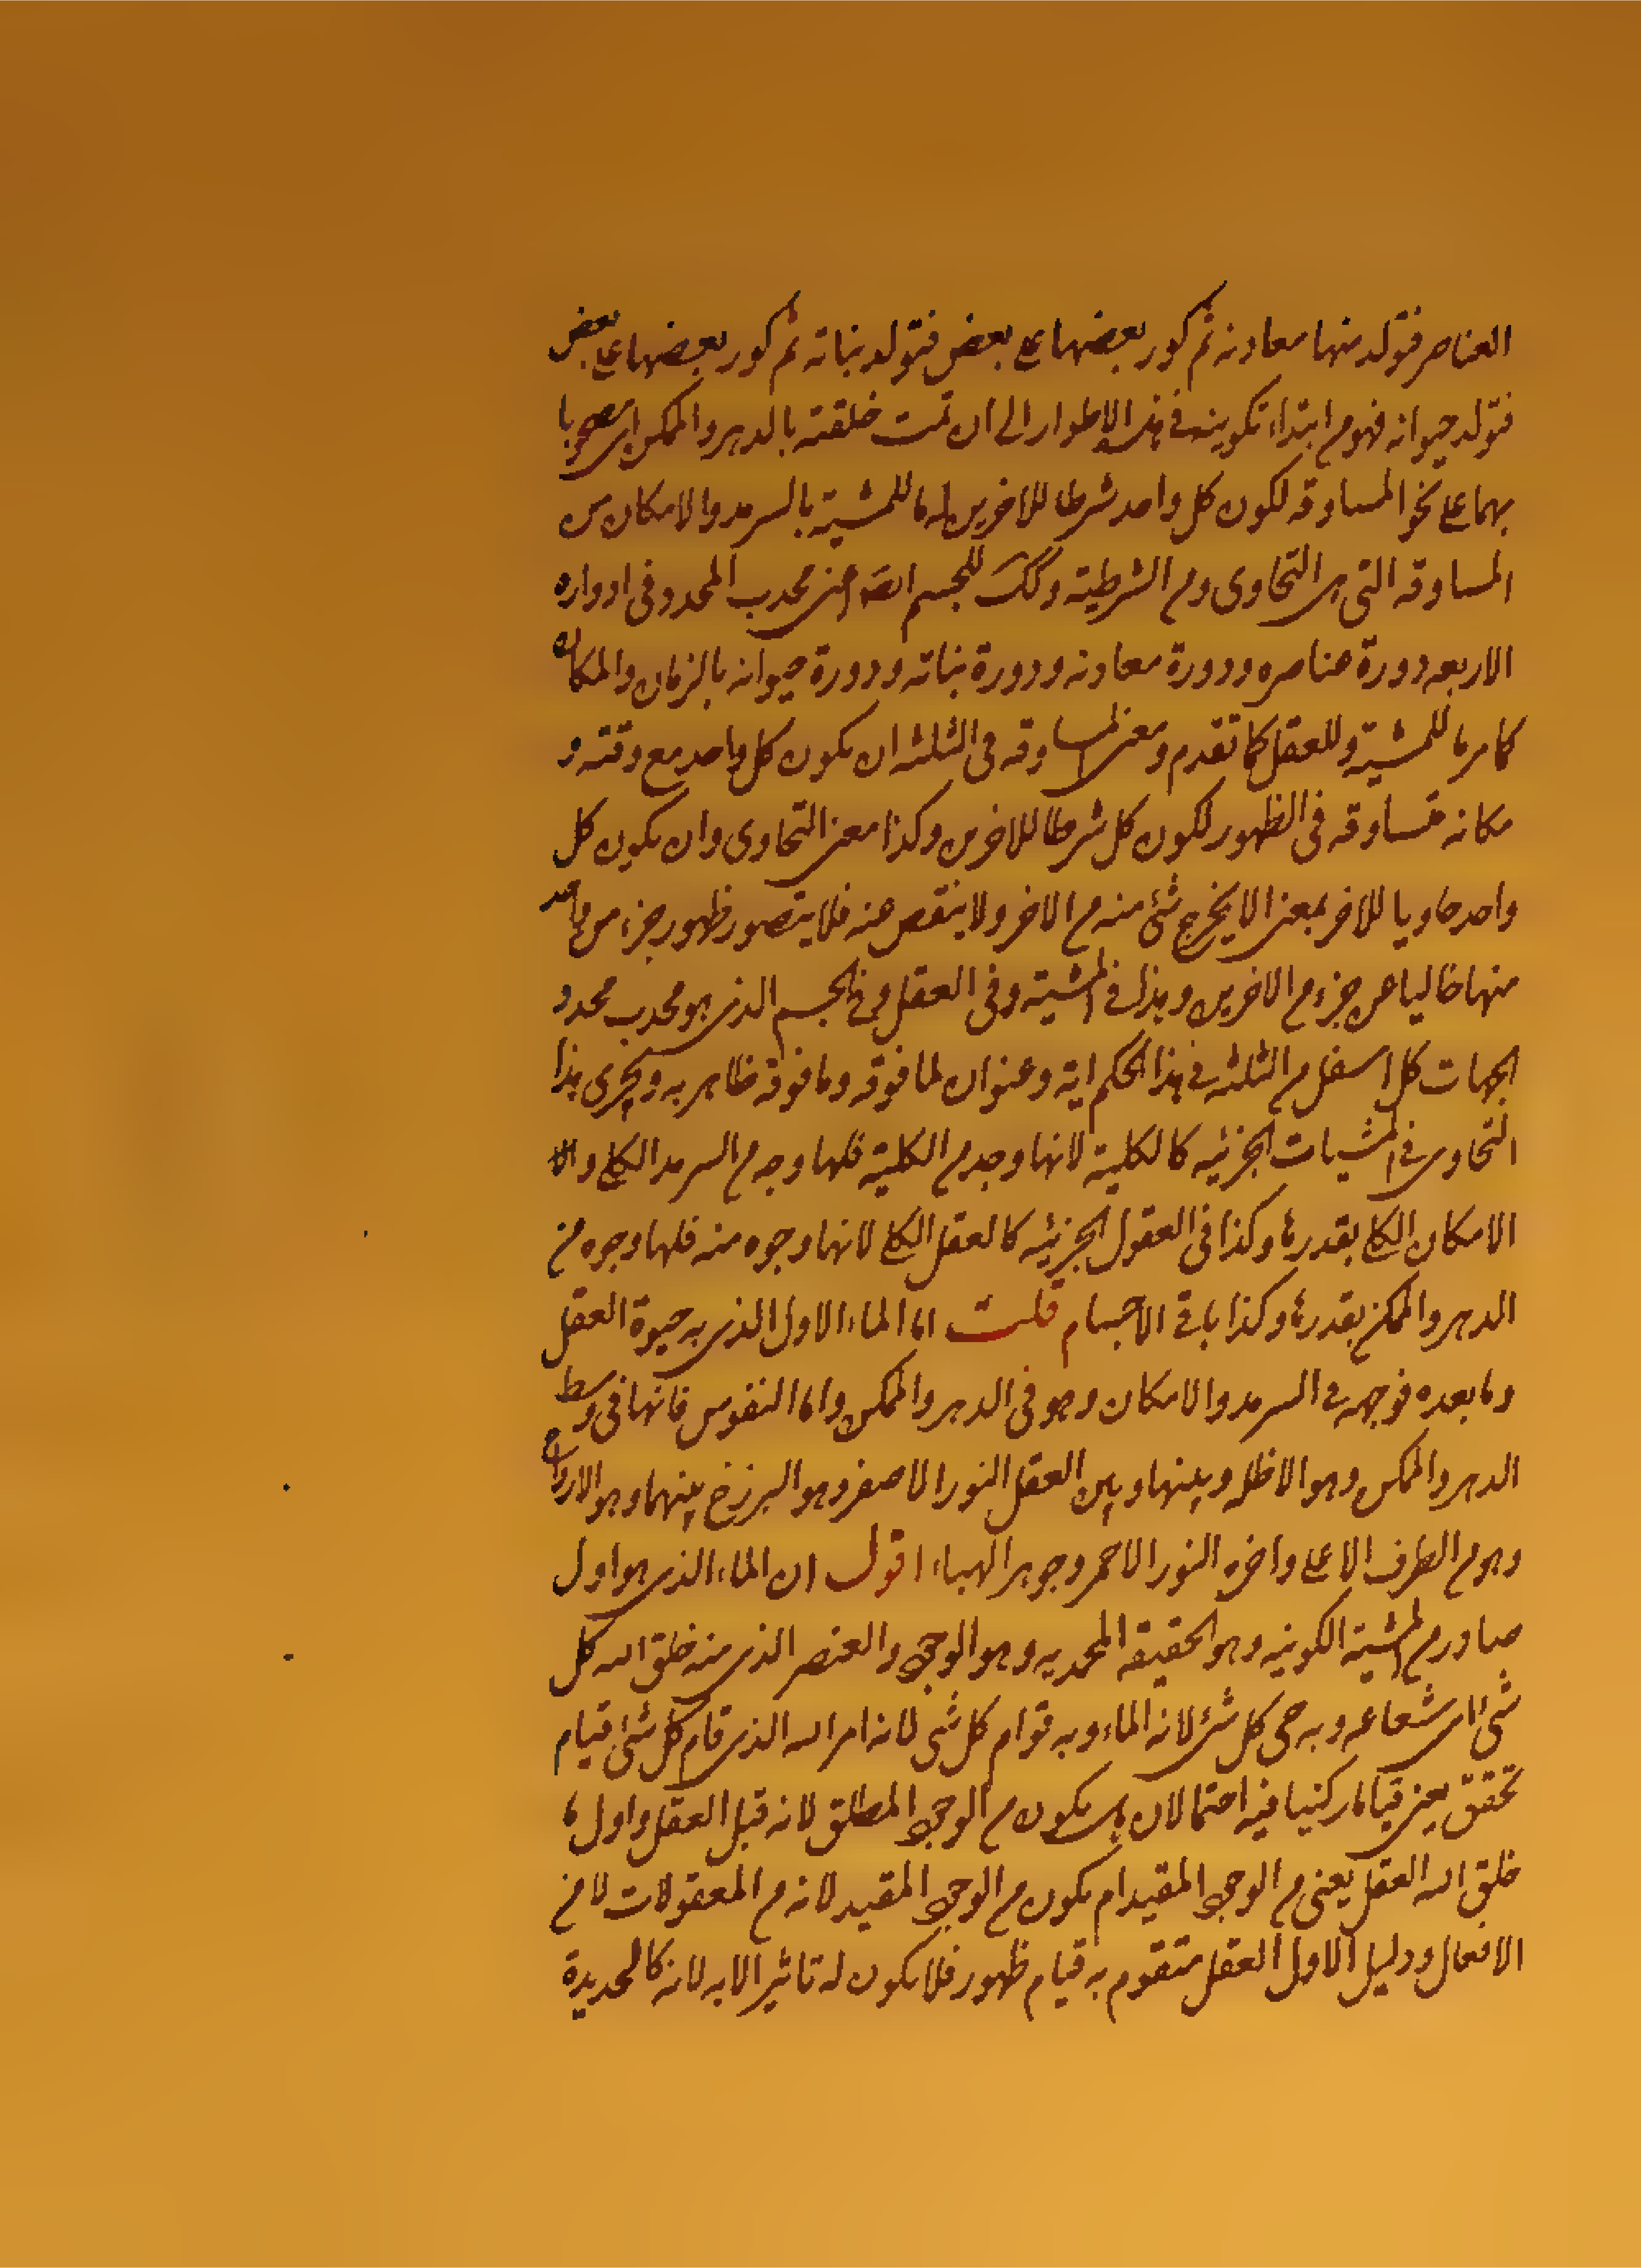 العناصر فتولد منها معادنه ثم كور بعضها على بعض فتولد نباته ثم كور بعضها على بعض
فتولد حيوانه فهو من ابتداء تكوينه في هذه الاطوار الى ان تمت خلقته بالدهر والممكن اي مصحوبا
بهما على نحو المساوقه لكون كل واحد شرطا للاخرين له ما للمشية بالسرمد والامكان من
المساوقه التي هي التحاوي ومن الشرطية وكك للجسم ايضا اعني محدب المحدد في ادواره
الاربعه دورة عناصره ودورة معادنه ودورة نباته ودورة حيوانه بالزمان والمكان
كما مر ما للمشية وللعقل كما تقدم ومعنى المساوقه في الثلثه ان يكون كل واحد مع وقته و
مكانه متساوقه في الظهور لكون كل شرطا للاخرين وكذا معنى التحاوي وان يكون كل
واحد حاويا للاخر بمعنى الا يخرج شئ منه من الاخر ولا ينقص عنه فلا يتصور ظهور جزء من واحد
منها خاليا عن جزء من الاخرين وهذا في المشية وفي العقل وفي الجسم الذي هو محدب محدد
الجهات كل اسفل من الثلثه في هذا الحكم اية وعنوان لما فوقه وما فوقه ظاهر به ويجري هذا
التحاوي في المشيات الجزئيه كالكلية لانها وجه من الكلية فلها وجه من السرمد الكلي و
الامكان الكلي بقدرها وكذا في العقول الجزئيه كالعقل الكلي لانها وجوه منه فلها وجوه من
الدهر والممكن بقدرها وكذا باقي الاجسام قلت اما الماء الاول الذي به حيوة العقل
وما بعده فوجهه في السرمد والامكان وهو في الدهر والممكن واما النفوس فانها في وسط
الدهر والممكن وهو الاظله وبينها وبين العقل النور الاصفر وهو البرزخ بينهما وهو الارواح
وهو من الطرف الاعلى واخره النور الاحمر وجوهر الهباء اقول ان الماء الذي هو اول
صادر من المشية الكونيه وهو الحقيقه المحمديه وهو الوجود والعنصر الذي منه خلق الله كل
شئ اي من شعاعه وبه حي كل شئ لانه الماء وبه قوام كل شئ لانه امر الله الذي قام كل شئ قيام
تحقق يعني قياما ركنيا فيه احتمالان هل يكون من الوجود المطلق لانه قبل العقل واول ما
خلق الله العقل يعني من الوجود المقيد ام يكون من الوجود المقيد لانه من المعقولات لا من
الافعال ودليل الاول العقل متقوم به قيام ظهور فلا يكون له تاثير الا به لانه كالحديدة